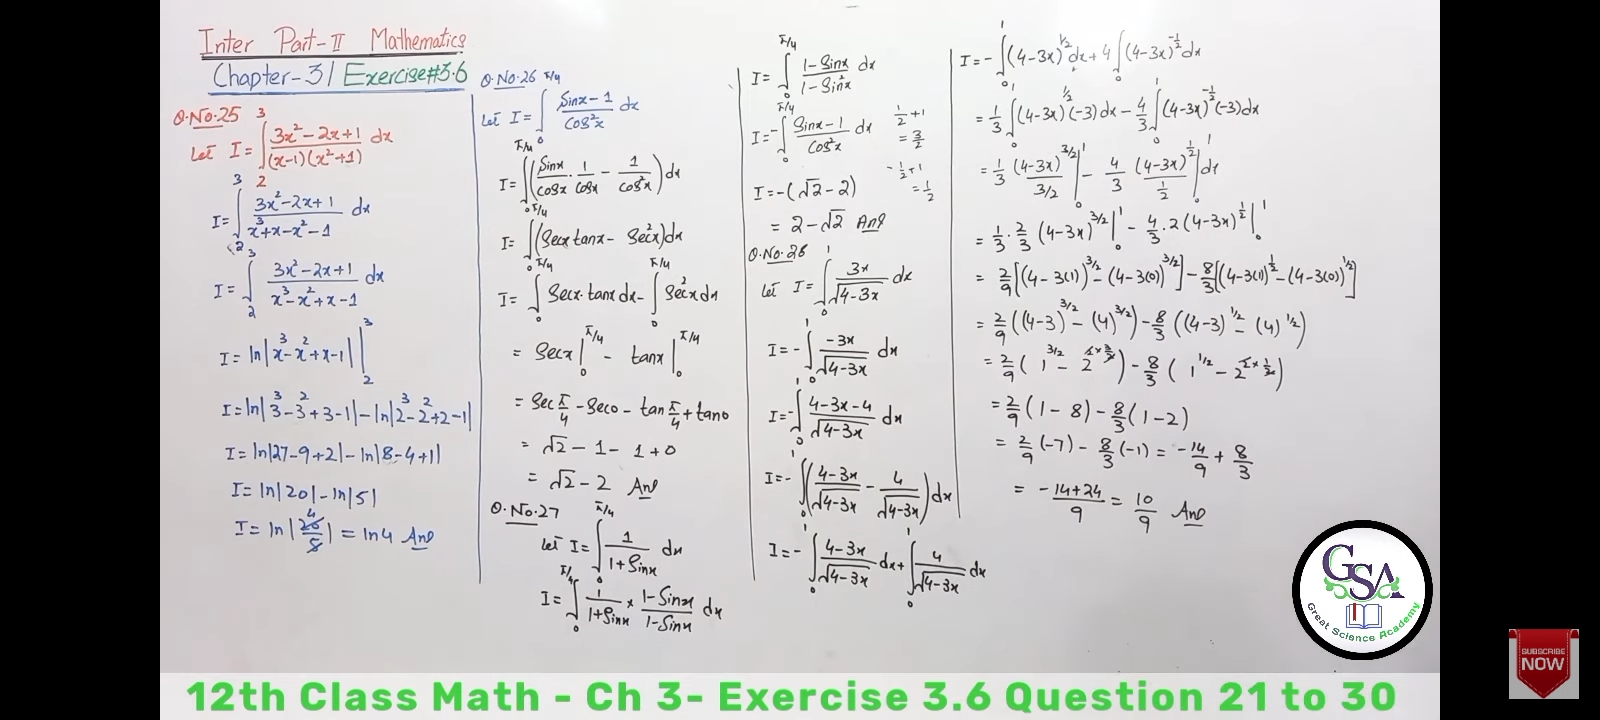 Inter Part-II Mathematics
Chapter-3/Exercise#3.6
Q.No.25
Let I = ∫₂³ (3x²-2x+1)/((x-1)(x²+1)) dx
I = ∫₂³ (3x²-2x+1)/(x³+x-x²-1) dx
I = ∫₂³ (3x²-2x+1)/(x³-x²+x-1) dx
I = ln|x³-x²+x-1| |₂³
I = ln|3³-3²+3-1|-ln|2³-2²+2-1|
I = ln|27-9+2|-ln|8-4+1|
I = ln|20|-ln|5|
I = ln|20/5| 4 = ln4 Ans
Q.No.26
Let I = ∫₀^(π/4) (Sinx-1)/(Cos²x) dx
I = ∫₀^(π/4) (Sinx/Cosx · 1/Cosx - 1/Cos²x) dx
I = ∫₀^(π/4) (Secx tanx - Sec²x) dx
I = ∫₀^(π/4) Secx·tanx dx - ∫₀^(π/4) Sec²x dx
= Secx|₀^(π/4) - tanx|₀^(π/4)
= Sec π/4 - Sec0 - tan π/4 + tan0
= √2 - 1 - 1 + 0
= √2 - 2 Ans
Q.No.27
Let I = ∫₀^(π/4) 1/(1+Sinx) dx
I = ∫₀^(π/4) 1/(1+Sinx) × (1-Sinx)/(1-Sinx) dx
I = ∫₀^(π/4) (1-Sinx)/(1-Sin²x) dx
I = -∫₀^(π/4) (Sinx-1)/(Cos²x) dx
1/2 + 1
= 3/2
-1/2 + 1
= 1/2
I = -(√2-2)
= 2-√2 Ans
Q.No.28
Let I = ∫₀¹ 3x/√(4-3x) dx
I = -∫₀¹ -3x/√(4-3x) dx
I = -∫₀¹ (4-3x-4)/√(4-3x) dx
I = -∫₀¹ ((4-3x)/√(4-3x) - 4/√(4-3x)) dx
I = -∫₀¹ (4-3x)/√(4-3x) dx + ∫₀¹ 4/√(4-3x) dx
I = -∫₀¹ (4-3x)^(1/2) dx + 4∫₀¹ (4-3x)^(-1/2) dx
= 1/3 ∫₀¹ (4-3x)^(1/2) (-3) dx - 4/3 ∫₀¹ (4-3x)^(-1/2) (-3) dx
= 1/3 (4-3x)^(3/2)/(3/2) |₀¹ - 4/3 (4-3x)^(1/2)/(1/2) |₀¹ dx
= 1/3 · 2/3 (4-3x)^(3/2) |₀¹ - 4/3 · 2(4-3x)^(1/2) |₀¹
= 2/9 [(4-3(1))^(3/2) - (4-3(0))^(3/2)] - 8/3 [(4-3(1))^(1/2) - (4-3(0))^(1/2)]
= 2/9 ((4-3)^(3/2) - (4)^(3/2)) - 8/3 ((4-3)^(1/2) - (4)^(1/2))
= 2/9 (1^(3/2) - 2^(2×3/2)) - 8/3 (1^(1/2) - 2^(2×1/2))
= 2/9 (1-8) - 8/3 (1-2)
= 2/9 (-7) - 8/3 (-1) = -14/9 + 8/3
= (-14+24)/9 = 10/9 Ans
GSA
Great Science Academy
SUBSCRIBE
NOW
12th Class Math - Ch 3- Exercise 3.6 Question 21 to 30